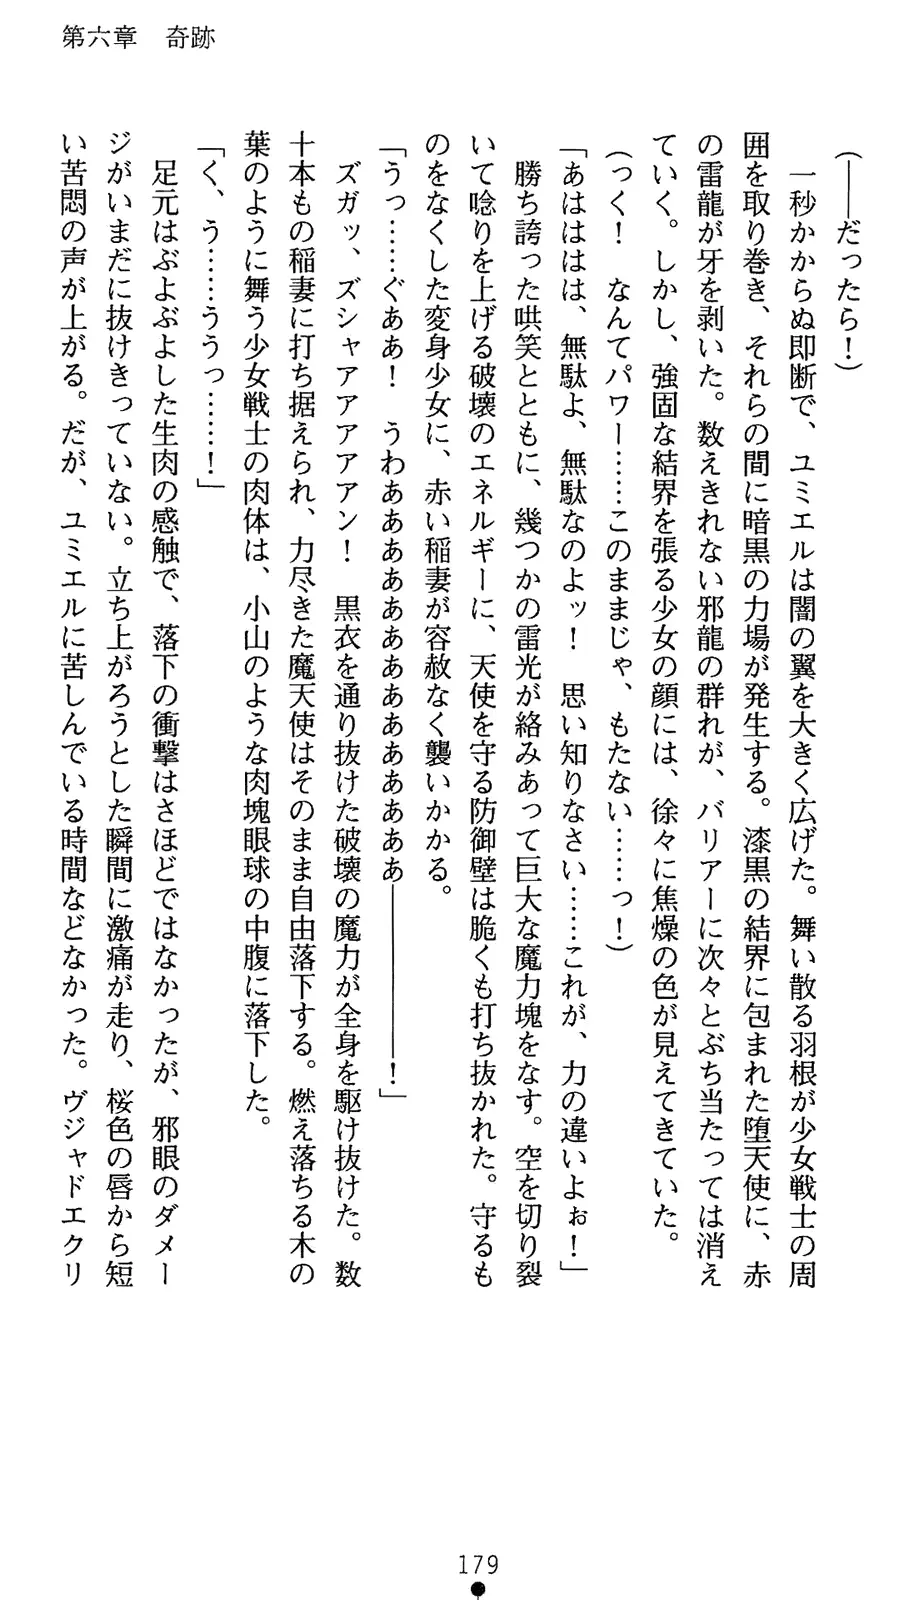 第六章　奇跡
（――だったら！）
　一秒かからぬ即断で、ユミエルは闇の翼を大きく広げた。舞い散る羽根が少女戦士の周
囲を取り巻き、それらの間に暗黒の力場が発生する。漆黒の結界に包まれた堕天使に、赤
の雷龍が牙を剥いた。数えきれない邪龍の群れが、バリアーに次々とぶち当たっては消え
ていく。しかし、強固な結界を張る少女の顔には、徐々に焦燥の色が見えてきていた。
（っく！　なんてパワー……このままじゃ、もたない……っ！）
「あはははは、無駄よ、無駄なのよッ！　思い知りなさい……これが、力の違いよぉ！」
　勝ち誇った哄笑とともに、幾つかの雷光が絡みあって巨大な魔力塊をなす。空を切り裂
いて唸りを上げる破壊のエネルギーに、天使を守る防御壁は脆くも打ち抜かれた。守るも
のをなくした変身少女に、赤い稲妻が容赦なく襲いかかる。
「うっ……ぐああ！　うわあああああああああああああ――――――！」
　ズガッ、ズシャアアアアン！　黒衣を通り抜けた破壊の魔力が全身を駆け抜けた。数
十本もの稲妻に打ち据えられ、力尽きた魔天使はそのまま自由落下する。燃え落ちる木の
葉のように舞う少女戦士の肉体は、小山のような肉塊眼球の中腹に落下した。
「く、う……ううっ……！」
　足元はぶよぶよした生肉の感触で、落下の衝撃はさほどではなかったが、邪眼のダメー
ジがいまだに抜けきっていない。立ち上がろうとした瞬間に激痛が走り、桜色の唇から短
い苦悶の声が上がる。だが、ユミエルに苦しんでいる時間などなかった。ヴジャドエクリ
179